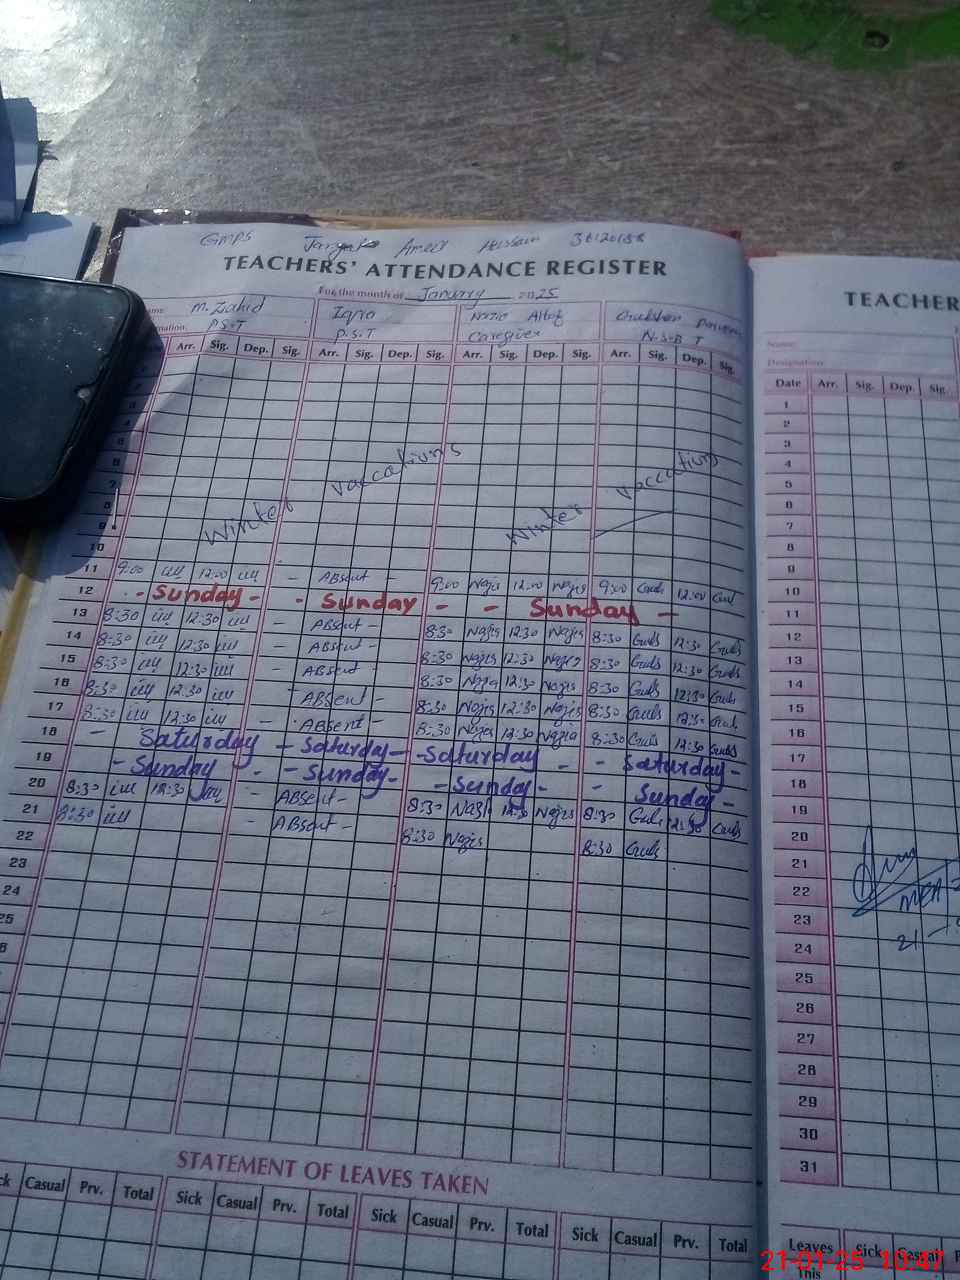 GMPS Ameer Hussain
TEACHERS' ATTENDANCE REGISTER
For the month of January 2025
M. Zahid Iqra Nazia Altaf
P.S.T P.S.T Caregiver
Arr. Sig. Dep. Sig. Arr. Sig. Dep. Sig. Arr. Sig. Dep. Sig. Arr. Sig. Dep. Sig.
4
5
6
7
8
9
10
Winter vaccations Winter vaccation
11 9:00 12:00 - ABsent - 9:00 Nazia 12:00 Nazia 9:00 Guls 12:00 Gul
12 - Sunday - - Sunday - - Sunday -
13 8:30 12:30 - ABsent - 8:30 Nazia 12:30 Nazia 8:30 Guls 12:30 Guls
14 8:30 12:30 - ABsent - 8:30 Nazia 12:30 Nazia 8:30 Guls 12:30 Guls
15 8:30 12:30 - ABsent - 8:30 Nazia 12:30 Nazia 8:30 Guls 12:30 Guls
16 8:30 12:30 - ABsent - 8:30 Nazia 12:30 Nazia 8:30 Guls 12:30 Guls
17 8:30 12:30 - ABsent - 8:30 Nazia 12:30 Nazia 8:30 Guls 12:30 Guls
18 - Saturday - Saturday - - Saturday - - Saturday -
19 - Sunday - - Sunday - - Sunday - - Sunday -
20 8:30 12:30 - ABsent - 8:30 Nazia 12:30 Nazia 8:30 Guls 12:30 Guls
21 8:30 - ABsent - 8:30 Nazia 8:30 Guls
22
23
24
25
STATEMENT OF LEAVES TAKEN
Casual Prv. Total Sick Casual Prv. Total Sick Casual Prv. Total Sick Casual Prv. Total
TEACHER
Name:
Designation:
Date Arr. Sig. Dep. Sig.
1
2
3
4
5
6
7
8
9
10
11
12
13
14
15
16
17
18
19
20
21
22
23
24
25
26
27
28
29
30
31
MEA
21
Leaves Sick Casual
This
21-01-25 10:47